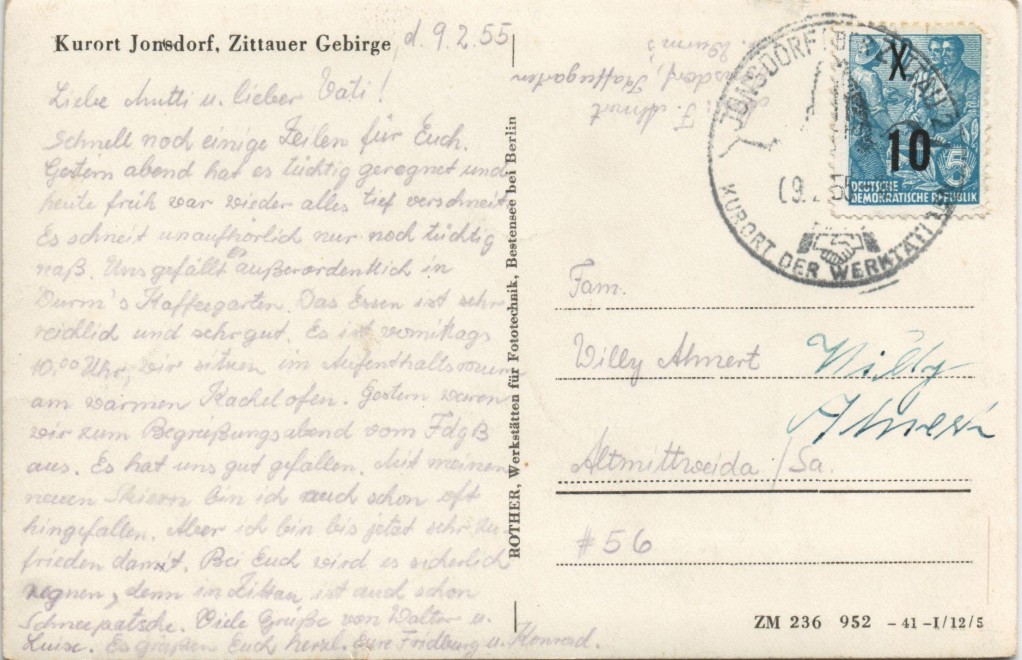 Kurort Jonsdorf, Zittauer Gebirge
d. 9.2.55
Liebe Mutti u. lieber Vati!
Schnell noch einige Zeilen für Euch.
Gestern abend hat es tüchtig geregnet und
heute früh war wieder alles tief verschneit.
Es schneit unaufhörlich nur noch tüchtig
naß. Uns gefällt es außerordentlich in
Durm's Kaffeegarten. Das Essen ist sehr
reichlich und sehr gut. Es ist vormittags
10,00 Uhr, wir sitzen im Aufenthaltsraum
am warmen Kachelofen. Gestern waren
wir zum Begrüßungsabend vom FdgB
aus. Es hat uns gut gefallen. Mit meinen
neuen Skiern bin ich auch schon oft
hingefallen. Aber ich bin bis jetzt sehr zu-
frieden damit. Bei Euch wird es sicherlich
regnen, denn in Zittau ist auch schon
Schneepatsche. Viele Grüße von Walter u.
Luise. Es grüßen Euch herzl. Eure Fridburg u. Konrad.
ROTHER, Werkstätten für Fototechnik, Bestensee bei Berlin
F. Ahnert
Jonsdorf, Kaffeegarten
Durm's
JONSDORF ZITTAU
09.2.55
KURORT DER WERKTÄTIGEN
X
10
5
DEUTSCHE
DEMOKRATISCHE REPUBLIK
Fam.
Willy Ahnert
Willy
Ahnert
Altmittweida/Sa.
#56
ZM 236 952 -41-I/12/5